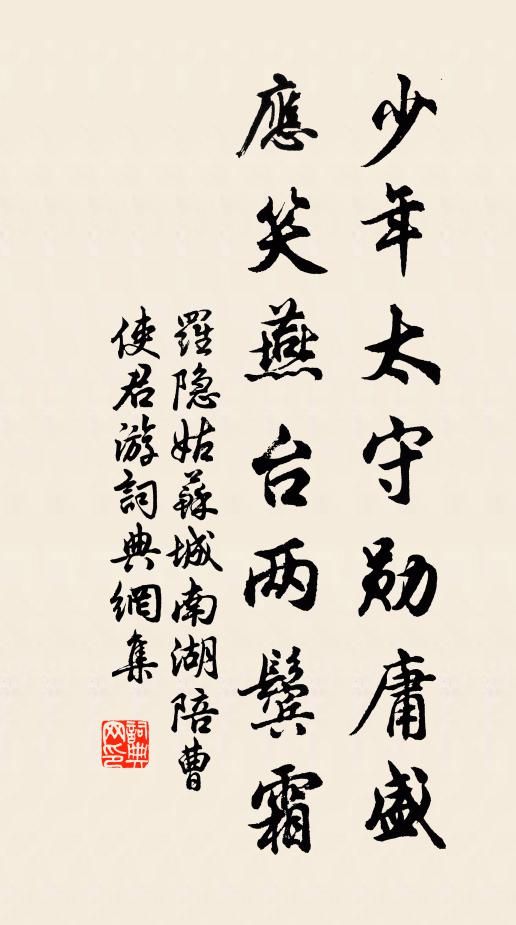 少年太守勋庸盛
應笑燕台两鬓霜
羅隐姑蘇城南湖陪曹
使君游詞典網集
詞典网印